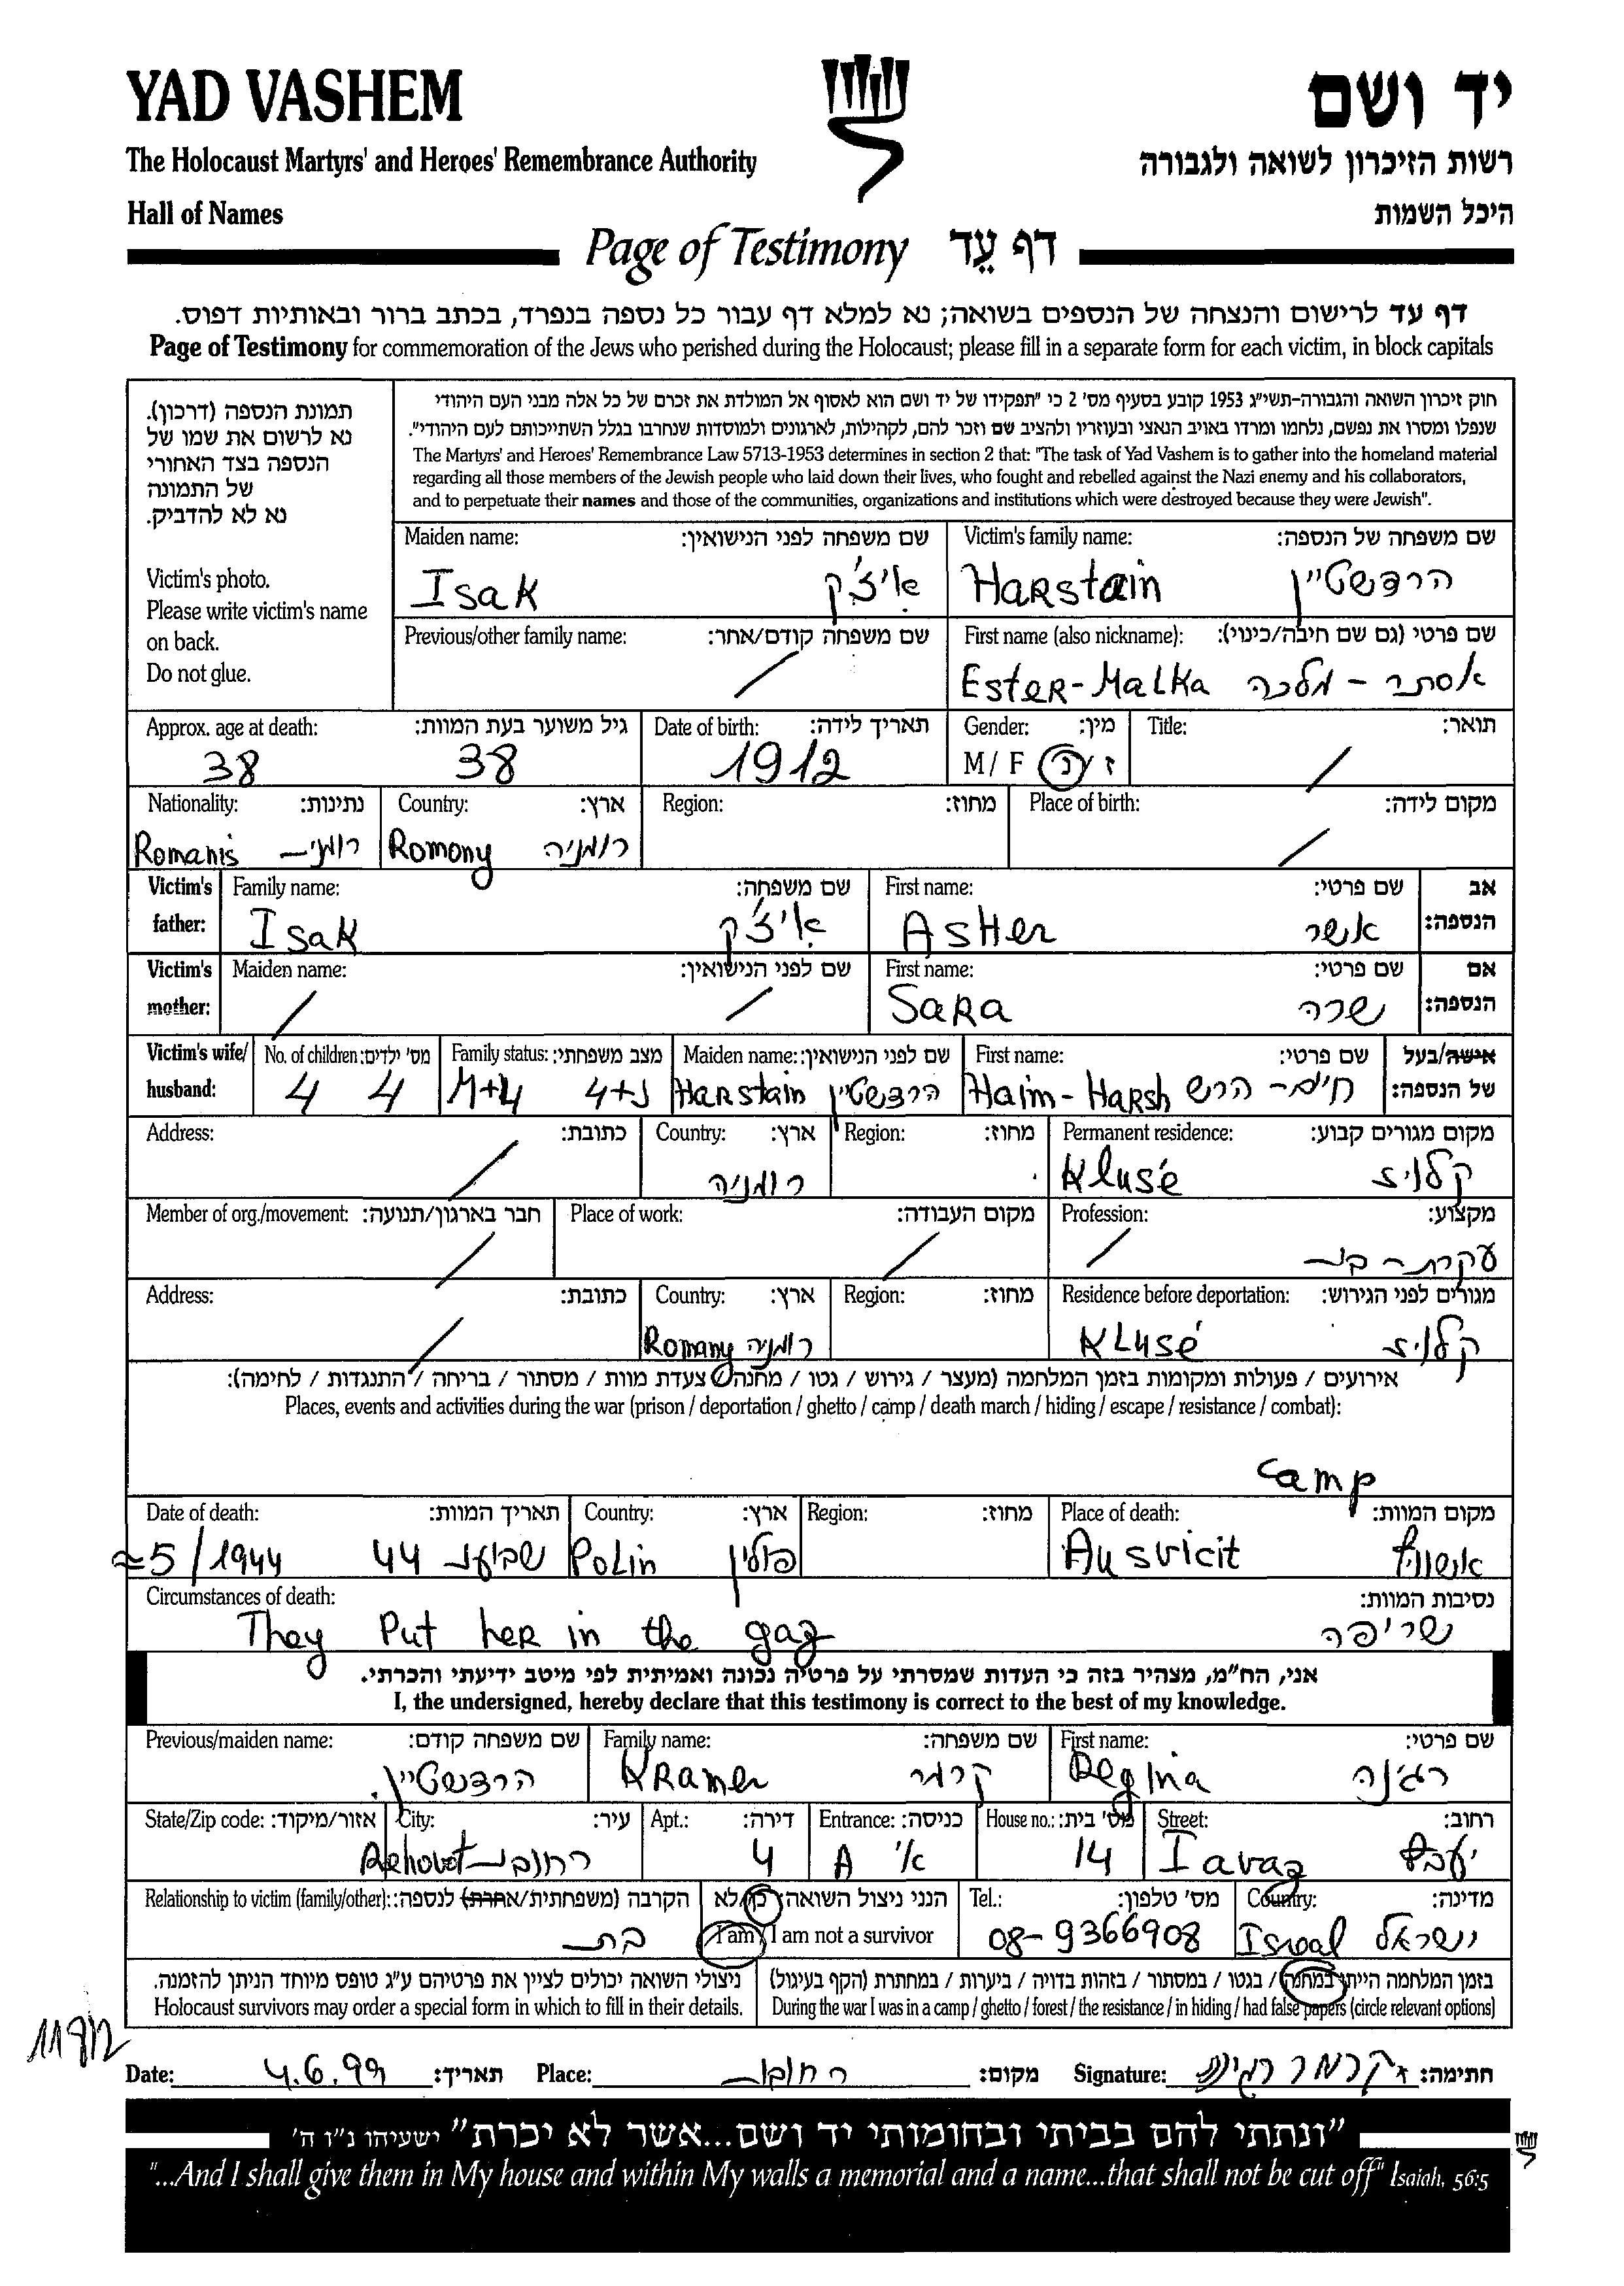 YAD VASHEM יד ושם
The Holocaust Martyrs' and Heroes' Remembrance Authority רשות הזיכרון לשואה ולגבורה
Hall of Names היכל השמות
Page of Testimony דף עֵד
דף עד לרישום והנצחה של הנספים בשואה; נא למלא דף עבור כל נספה בנפרד, בכתב ברור ובאותיות דפוס.
Page of Testimony for commemoration of the Jews who perished during the Holocaust; please fill in a separate form for each victim, in block capitals
תמונת הנספה (דרכון).
נא לרשום את שמו של
הנספה בצד האחורי
של התמונה
נא לא להדביק.
Victim's photo.
Please write victim's name
on back.
Do not glue.
חוק זיכרון השואה והגבורה-תשי"ג 1953 קובע בסעיף מס' 2 כי "תפקידו של יד ושם הוא לאסוף אל המולדת את זכרם של כל אלה מבני העם היהודי
שנפלו ומסרו את נפשם, נלחמו ומרדו באויב הנאצי ובעוזריו ולהציב שם וזכר להם, לקהילות, לארגונים ולמוסדות שנחרבו בגלל השתייכותם לעם היהודי".
The Martyrs' and Heroes' Remembrance Law 5713-1953 determines in section 2 that: "The task of Yad Vashem is to gather into the homeland material
regarding all those members of the Jewish people who laid down their lives, who fought and rebelled against the Nazi enemy and his collaborators,
and to perpetuate their names and those of the communities, organizations and institutions which were destroyed because they were Jewish".
Maiden name: שם משפחה לפני הנישואין: Victim's family name: שם משפחה של הנספה:
Isak איצ'ק Harstain הרצשטיין
Previous/other family name: שם משפחה קודם/אחר: First name (also nickname): שם פרטי (גם שם חיבה/כינוי):
/ Ester-Malka אסתר - מלכה
Approx. age at death: גיל משוער בעת המוות: Date of birth: תאריך לידה: Gender: מין: Title: תואר:
38 38 1912 M/ F ז / נ /
Nationality: נתינות: Country: ארץ: Region: מחוז: Place of birth: מקום לידה:
Romanis רומני Romony רומניה /
Victim's father: Family name: שם משפחה: First name: שם פרטי: אב הנספה:
Isak איצ'ק Asher אשר
Victim's mother: Maiden name: שם לפני הנישואין: First name: שם פרטי: אם הנספה:
/ / Sara שרה
Victim's wife/ husband: No. of children: מס' ילדים: Family status: מצב משפחתי: Maiden name: שם לפני הנישואין: First name: שם פרטי: אישה/בעל של הנספה:
4 4 M+4 נ+4 Harstain הרצשטיין Haim-Harsh חיים- הרש
Address: כתובת: Country: ארץ: Region: מחוז: Permanent residence: מקום מגורים קבוע:
/ רומניה Klusé קלוז
Member of org./movement: חבר בארגון/תנועה: Place of work: מקום העבודה: Profession: מקצוע:
/ / / עקרת-בית
Address: כתובת: Country: ארץ: Region: מחוז: Residence before deportation: מגורים לפני הגירוש:
/ Romany רומניה Klusé קלוז
אירועים / פעולות ומקומות בזמן המלחמה (מעצר / גירוש / גטו / מחנה / צעדת מוות / מסתור / בריחה / התנגדות / לחימה):
Places, events and activities during the war (prison / deportation / ghetto / camp / death march / hiding / escape / resistance / combat):
Camp
Date of death: תאריך המוות: Country: ארץ: Region: מחוז: Place of death: מקום המוות:
≈5/1944 44 Polin פולין Ausvicit אושוויץ
Circumstances of death: נסיבות המוות:
They Put her in the gaz שריפה
אני, הח"מ, מצהיר בזה כי העדות שמסרתי על פרטיה נכונה ואמיתית לפי מיטב ידיעתי והכרתי.
I, the undersigned, hereby declare that this testimony is correct to the best of my knowledge.
Previous/maiden name: שם משפחה קודם: Family name: שם משפחה: First name: שם פרטי:
הרצשטיין. Kramer קרמר Regina רג'נה
State/Zip code: אזור/מיקוד: City: עיר: Apt.: דירה: Entrance: כניסה: House no.: מס' בית: Street: רחוב:
Rehovot רחובות 4 A א' 14 Iavaz יעבץ
Relationship to victim (family/other): הקרבה (משפחתית/אחרת) לנספה: הנני ניצול השואה: כן/לא Tel.: מס' טלפון: Country: מדינה:
בת I am / I am not a survivor 08-9366908 Isroal ישראל
ניצולי השואה יכולים לציין את פרטיהם ע"ג טופס מיוחד הניתן להזמנה. בזמן המלחמה הייתי במחנה / בגטו / במסתור / בזהות בדויה / ביערות / במחתרת (הקף בעיגול)
Holocaust survivors may order a special form in which to fill in their details. During the war I was in a camp / ghetto / forest / the resistance / in hiding / had false papers (circle relevant options)
Date: 4.6.99 תאריך: Place: רחובות מקום: Signature: קרמר חתימה:
"ונתתי להם בביתי ובחומותי יד ושם...אשר לא יכרת" ישעיהו נ"ו ה'
"...And I shall give them in My house and within My walls a memorial and a name...that shall not be cut off" Isaiah, 56:5